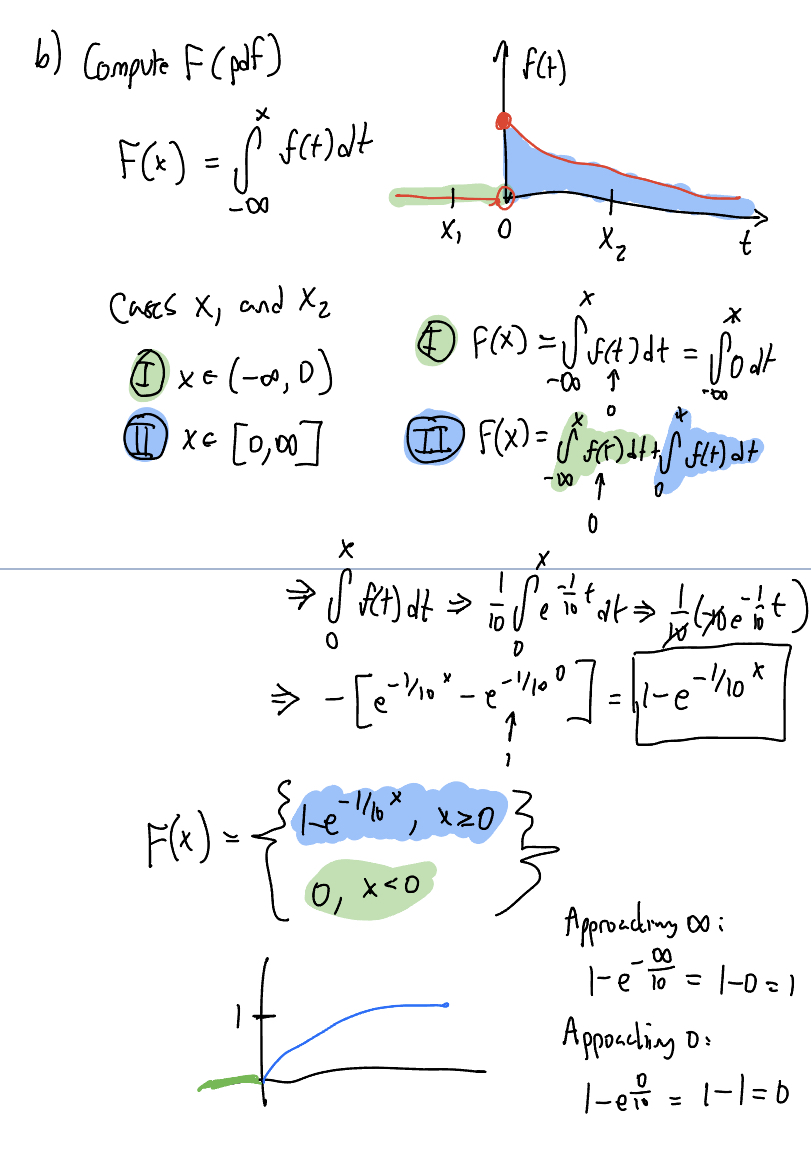 b) Compute F(pdf)
f(t)
F(x) = ∫_{-∞}^{x} f(t)dt
x₁ 0 x₂ t
Cases x₁ and x₂
Ⓘ x ∈ (-∞, 0)
Ⓘ F(x) = ∫_{-∞}^{x} f(t)dt = ∫_{-∞}^{x} 0 dt
↑
0
II x ∈ [0,∞]
II F(x) = ∫_{-∞}^{x} f(t)dt + ∫_{0}^{x} f(t)dt
↑
0
⇒ ∫_{0}^{x} f(t)dt ⇒ 1/10 ∫_{0}^{x} e^{-1/10 t} dt ⇒ 1/10(-10e^{-1/10 t})
⇒ -[e^{-1/10 x} - e^{-1/10 0}] = 1-e^{-1/10 x}
↑
1
F(x) = { 1-e^{-1/10 x}, x≥0
0, x<0 }
Approaching ∞:
1-e^{-∞/10} = 1-0=1
1
Appoaching 0:
1-e^{0/10} = 1-1=0